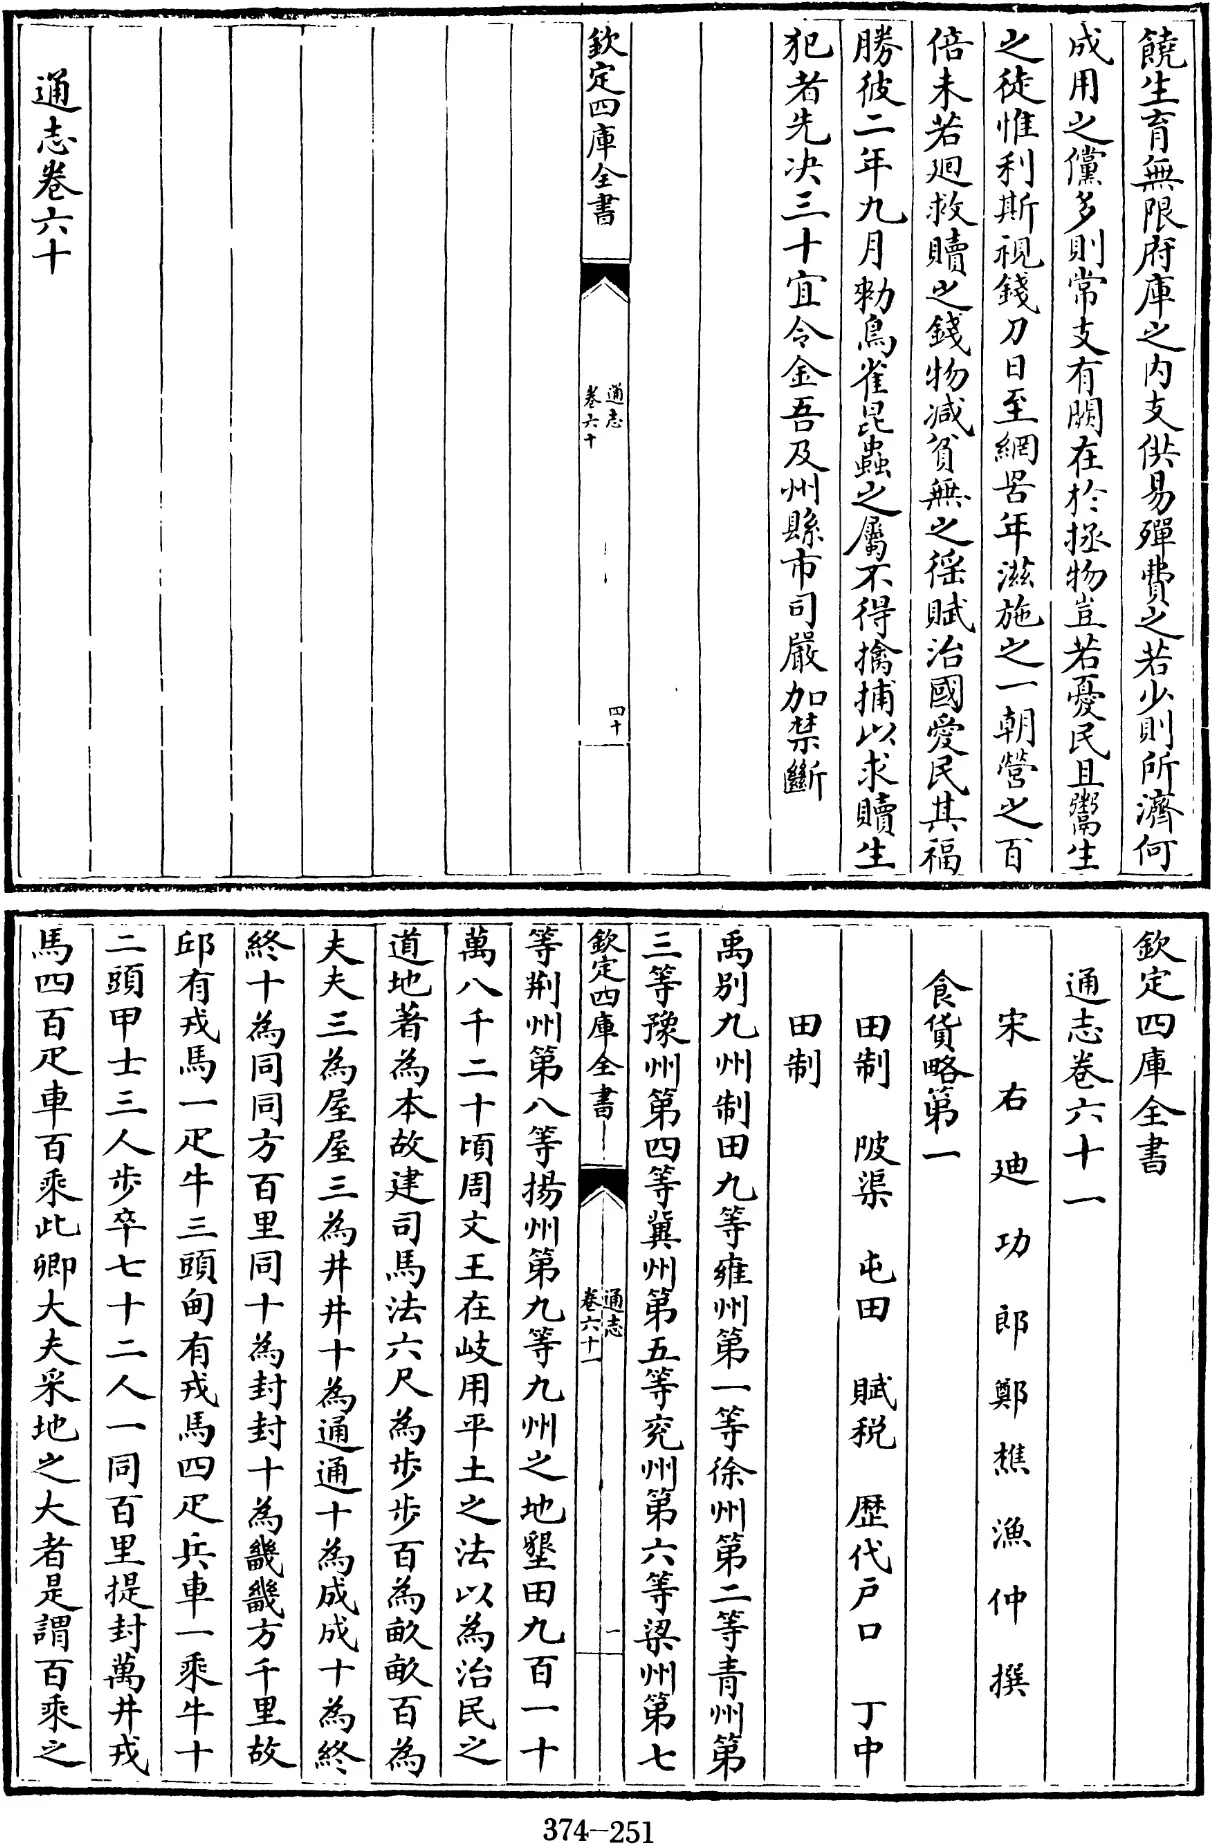 饒生育無限府庫之内支供易殫費之若少則所濟何
成用之儻多則常支有闕在於拯物豈若憂民且鬻生
之徒惟利斯視錢刀日至網罟年滋施之一朝營之百
倍未若廻救贖之錢物减貧無之徭賦治國愛民其福
勝彼二年九月勑鳥雀昆蟲之屬不得擒捕以求贖生
犯者先决三十宜令金吾及州縣市司嚴加禁斷
欽定四庫全書
通志
卷六十
四十
通志卷六十
欽定四庫全書
通志卷六十一
宋右迪功郎鄭樵漁仲撰
食貨略第一
田制 陂渠 屯田 賦税 歴代户口 丁中
田制
禹别九州制田九等雍州第一等徐州第二等青州第
三等豫州第四等冀州第五等兖州第六等梁州第七
欽定四庫全書
通志
卷六十一
一
等荆州第八等揚州第九等九州之地墾田九百一十
萬八千二十頃周文王在岐用平土之法以為治民之
道地著為本故建司馬法六尺為步步百為畝畝百為
夫夫三為屋屋三為井井十為通通十為成成十為終
終十為同同方百里同十為封封十為畿畿方千里故
邱有戎馬一疋牛三頭甸有戎馬四疋兵車一乘牛十
二頭甲士三人步卒七十二人一同百里提封萬井戎
馬四百疋車百乘此卿大夫采地之大者是謂百乘之
374-251